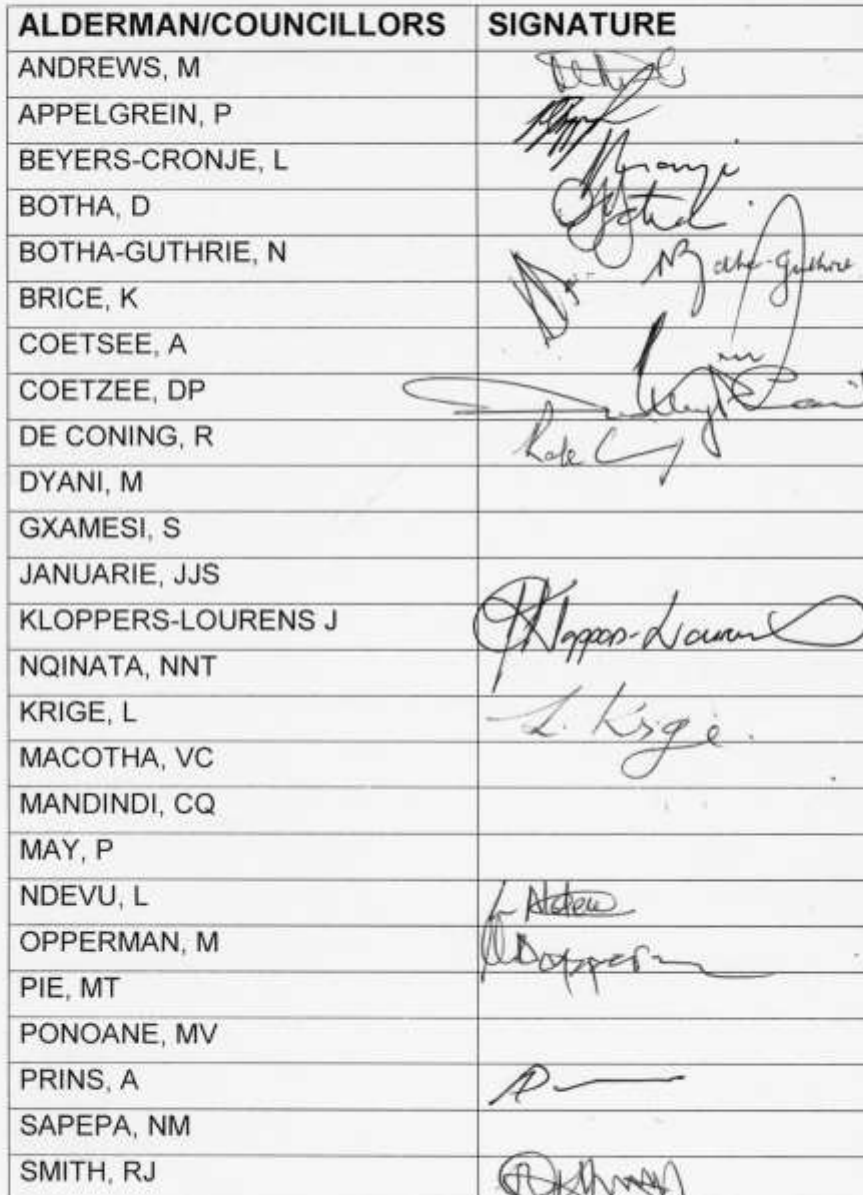 ALDERMAN/COUNCILLORS SIGNATURE
ANDREWS, M
APPELGREIN, P
BEYERS-CRONJE, L
BOTHA, D
BOTHA-GUTHRIE, N Botha-Guthrie
BRICE, K
COETSEE, A
COETZEE, DP
DE CONING, R
DYANI, M
GXAMESI, S
JANUARIE, JJS
KLOPPERS-LOURENS J
NQINATA, NNT
KRIGE, L L. Krige
MACOTHA, VC
MANDINDI, CQ
MAY, P
NDEVU, L
OPPERMAN, M
PIE, MT
PONOANE, MV
PRINS, A
SAPEPA, NM
SMITH, RJ